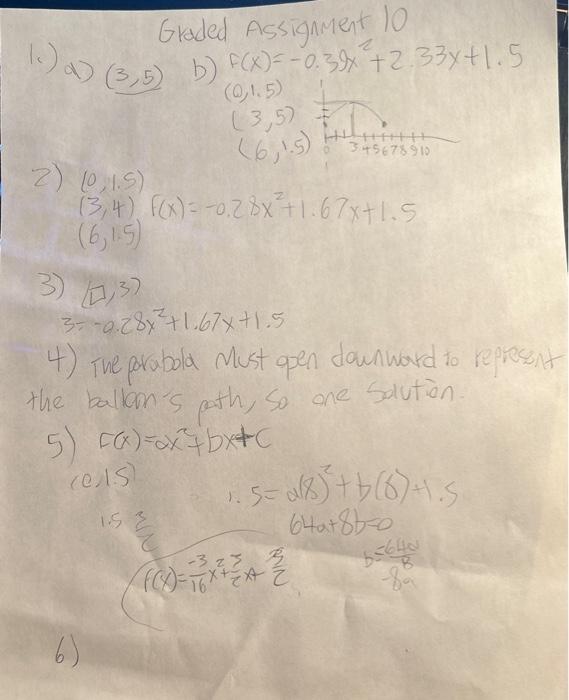 Graded Assignment 10
1.) a) (3,5) b) f(x)=-0.39x²+2.33x+1.5
(0,1.5)
(3,5)
(6,1.5) 0 3 4 5 6 7 8 9 10
2) (0,1.5)
(3,4) f(x)=-0.28x²+1.67x+1.5
(6,1.5)
3) (□,3)
3=-0.28x²+1.67x+1.5
4) The parabola Must open downward to represent
the ballon's path, so one solution.
5) f(x)=ax²+bx+c
(0,1.5)
1.5=a(8)²+b(8)+1.5
1.5 3/2 64a+8b=0
b=-64a/8
-8a
f(x)=-3/16x²+3/2x+3/2
6)